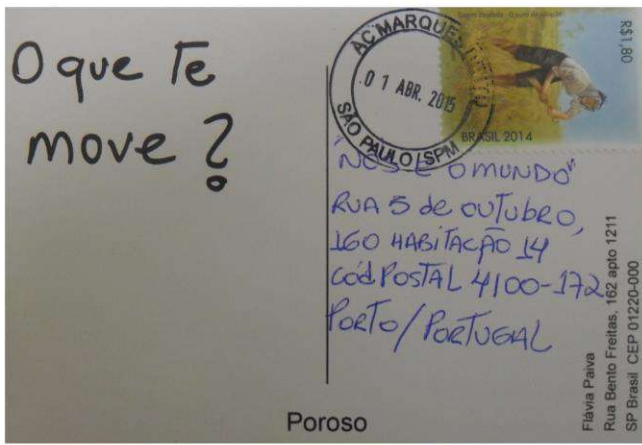 O que te
move?
AC MARQUES
01 ABR. 2015
SÃO PAULO / SPM
R$1,80
BRASIL 2014
"NÓS E O MUNDO"
RUA 5 de OUTUBRO,
160 HABITAÇÃO 14
cód. POSTAL 4100-172
PORTO / PORTUGAL
Flávia Paiva
Rua Bento Freitas, 162 apto 1211
SP Brasil CEP 01220-000
Poroso